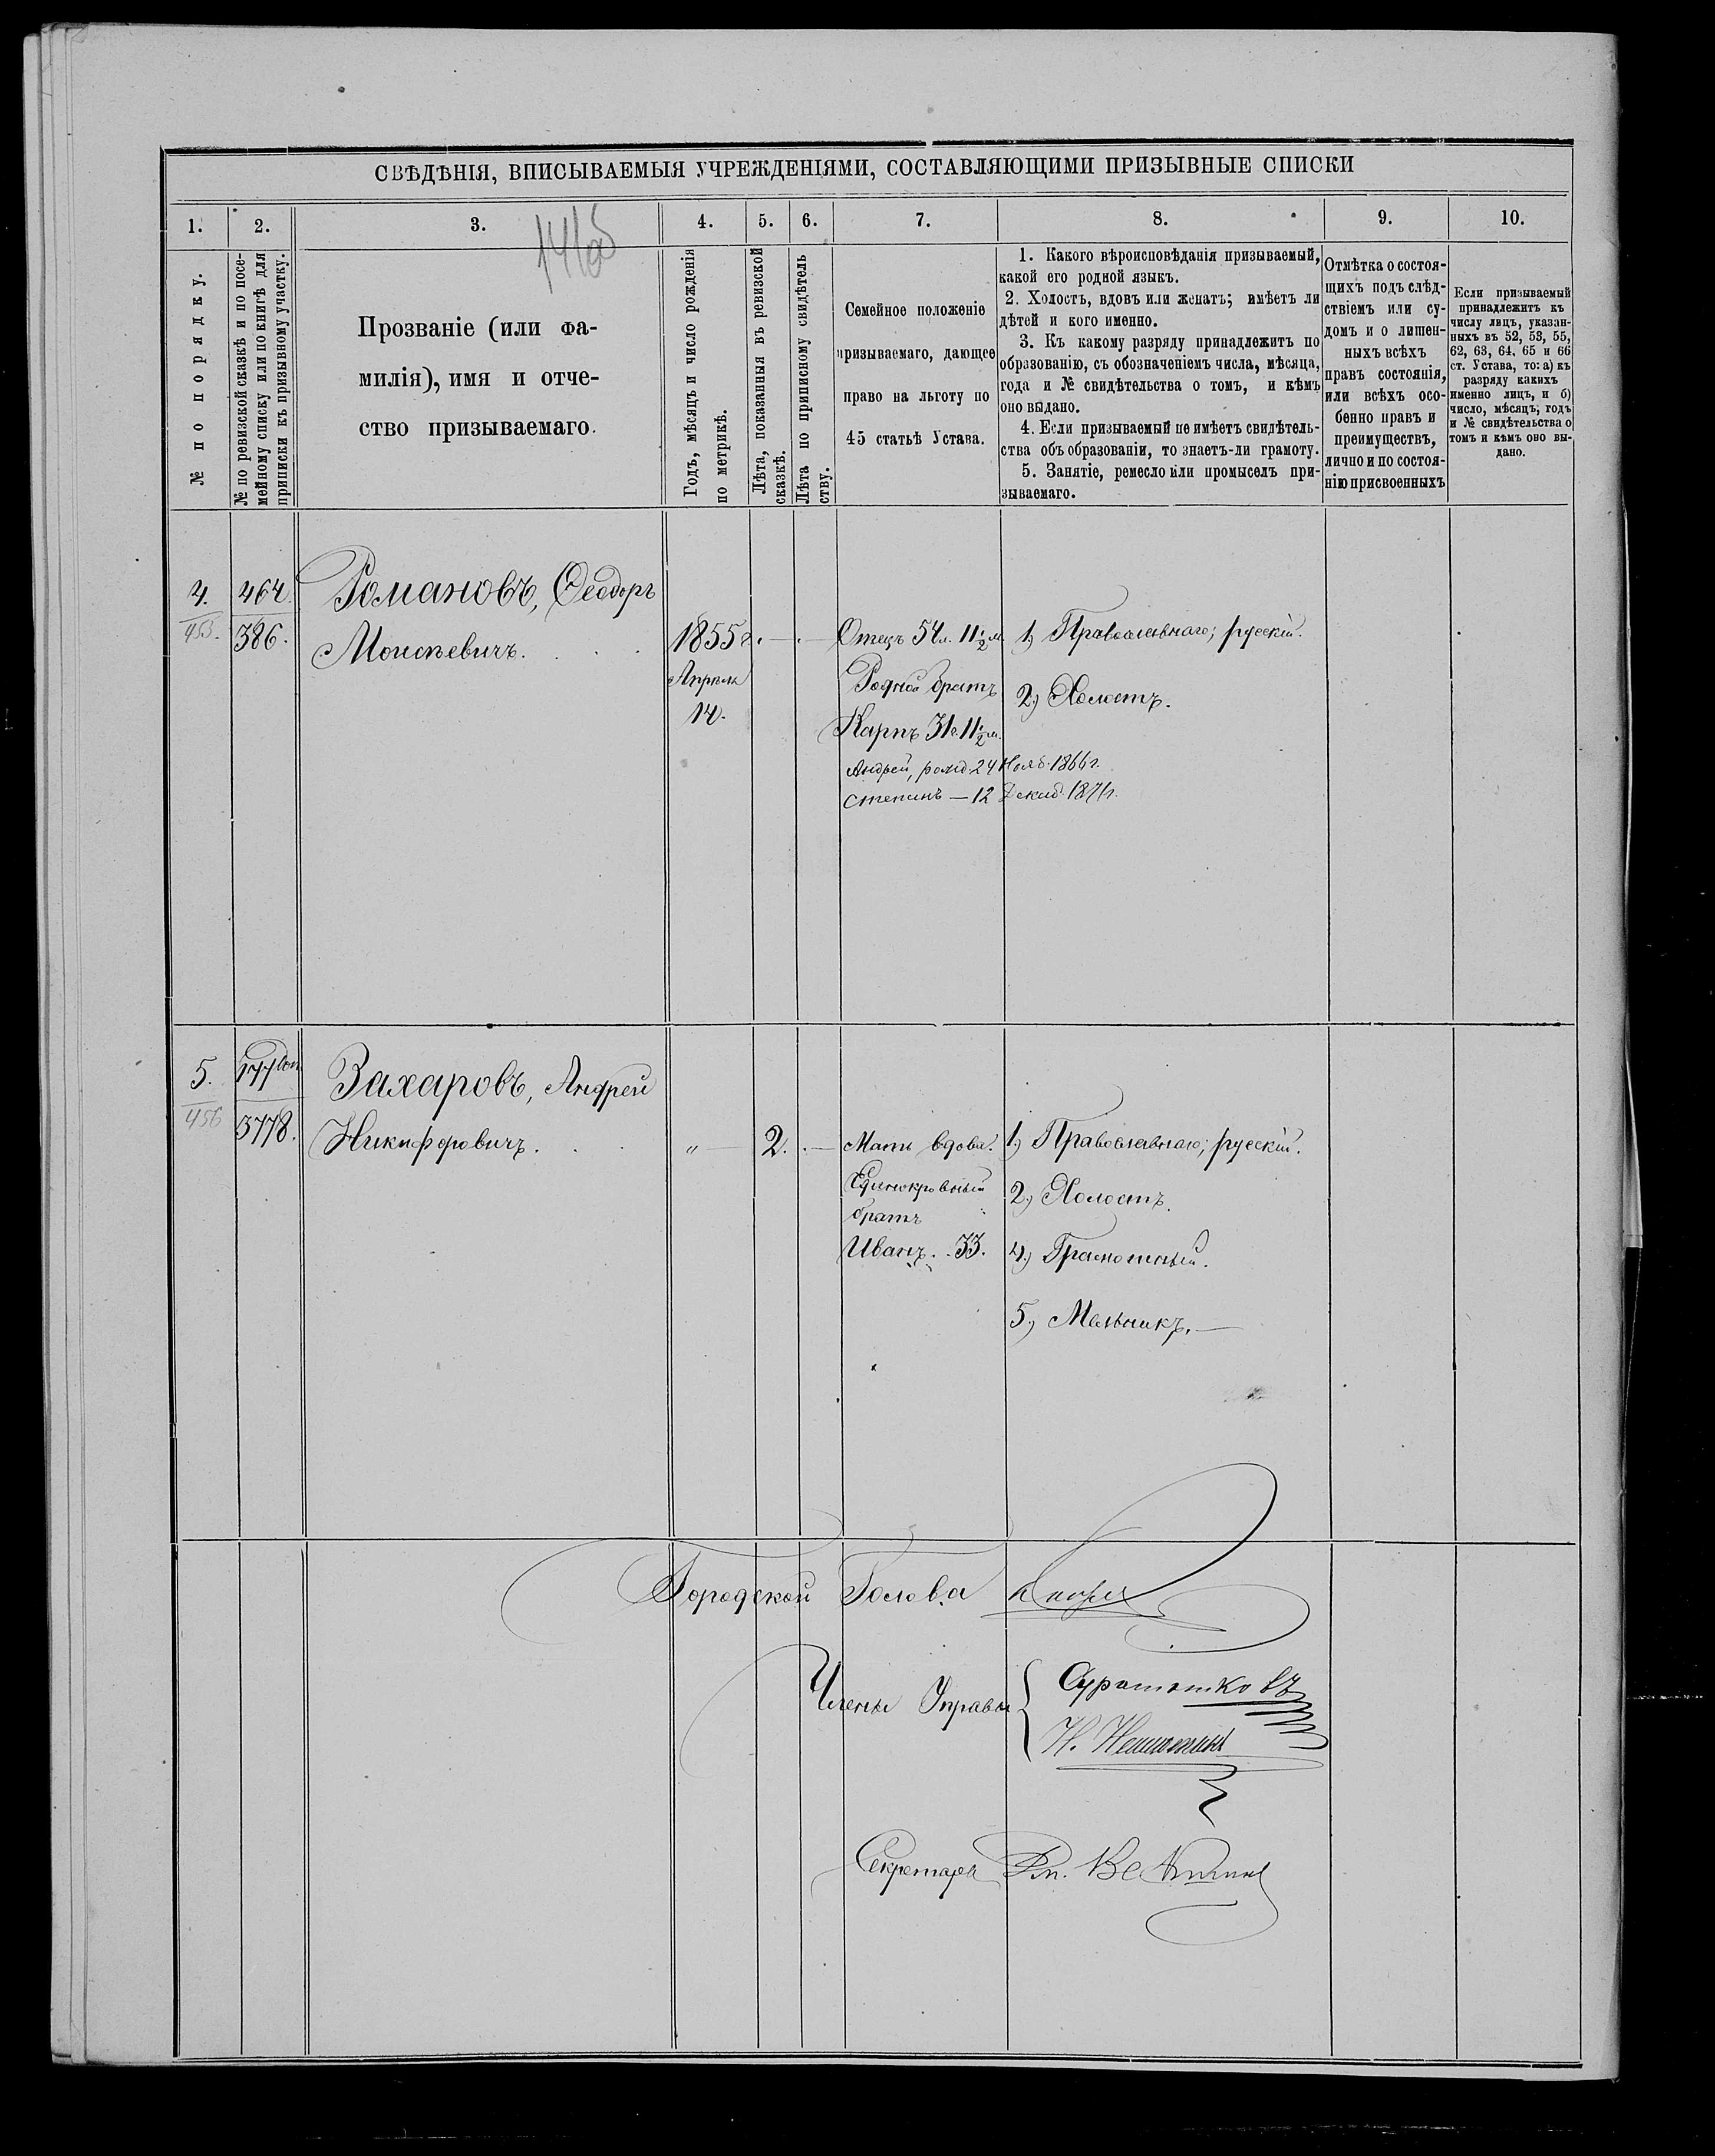 СВѢДѢНІЯ, ВПИСЫВАЕМЫЯ УЧРЕЖДЕНІЯМИ, СОСТАВЛЯЮЩИМИ ПРИЗЫВНЫЕ СПИСКИ
1.
2.
3.
4.
5.
6.
7.
8.
9.
10.
№ по порядку.
№ по ревизской сказкѣ и по посе-
мейному списку или по книгѣ для
приписки къ призывному участку.
Прозваніе (или фа-
милія), имя и отче-
ство призываемаго.
Годъ, мѣсяцъ и число рожденія
по метрикѣ.
Лѣта, показанныя въ ревизской
сказкѣ.
Лѣта по приписному свидѣтель
ству.
Семейное положеніе
призываемаго, дающее
право на льготу по
45 статьѣ Устава.
1. Какого вѣроисповѣданія призываемый,
какой его родной языкъ.
2. Холостъ, вдовъ или женатъ; имѣетъ ли
дѣтей и кого именно.
3. Къ какому разряду принадлежитъ по
образованію, съ обозначеніемъ числа, мѣсяца,
года и № свидѣтельства о томъ, и кѣмъ
оно выдано.
4. Если призываемый не имѣетъ свидѣтель-
ства объ образованіи, то знаетъ-ли грамоту.
5. Занятіе, ремесло или промыселъ при-
зываемаго.
Отмѣтка о состоя-
щихъ подъ слѣд-
ствіемъ или су-
домъ и о лишен-
ныхъ всѣхъ
правъ состоянія,
или всѣхъ осо-
бенно правъ и
преимуществъ,
лично и по состоя-
нію присвоенныхъ
Если призываемый
принадлежитъ къ
числу лицъ, указан-
ныхъ въ 52, 53, 55,
62, 63, 64, 65 и 66
ст. Устава, то: а) къ
разряду какихъ
именно лицъ, и б)
число, мѣсяцъ, годъ
и № свидѣтельства о
томъ и кѣмъ оно вы-
дано.
4.
455.
464.
386.
Романовъ, Ѳеодоръ
Моисѣевичъ.
1855 г.
Апрѣля
14.
Отецъ 54 л. 11½ м.
Родной братъ
Карпъ 31 г. 11½ м.
Андрей, рожд. 24 Нояб. 1866 г.
Степанъ — 12 Декаб. 1871 г.
1) Православнаго; русскій.
2) Холостъ.
5.
456
177 доп
3778.
Захаровъ, Андрей
Никифоровичъ.
„ —
2.
Мать вдова.
Единокровный
братъ
Иванъ. 33.
1) Православнаго; русскій.
2) Холостъ.
4) Грамотный.
5) Мельникъ. —
Городской Голова
Члены Управы
Секретарь